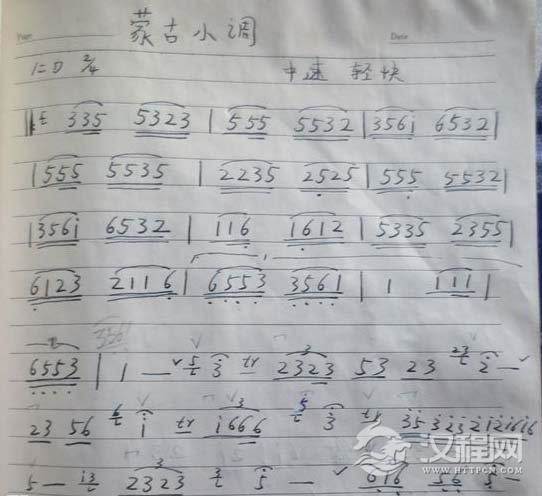 蒙古小调
Date
1=D 2/4 中速 轻快
335 5323 | 555 5532 | 356i 6532 |
| 555 5535 | 2235 2525 | 555 5532 |
| 356i 6532 | 116 1612 | 5335 2355 |
6123 2116 | 6553 3561 | 1 111 |
6553 | 1 — 3 tr 2323 53 23 2 —
23 56 i tr i666 3 tr 35 323 212i6i6
5 — 2323 5 — 616 56 5 —
汉程网
WWW.HTTPCN.COM